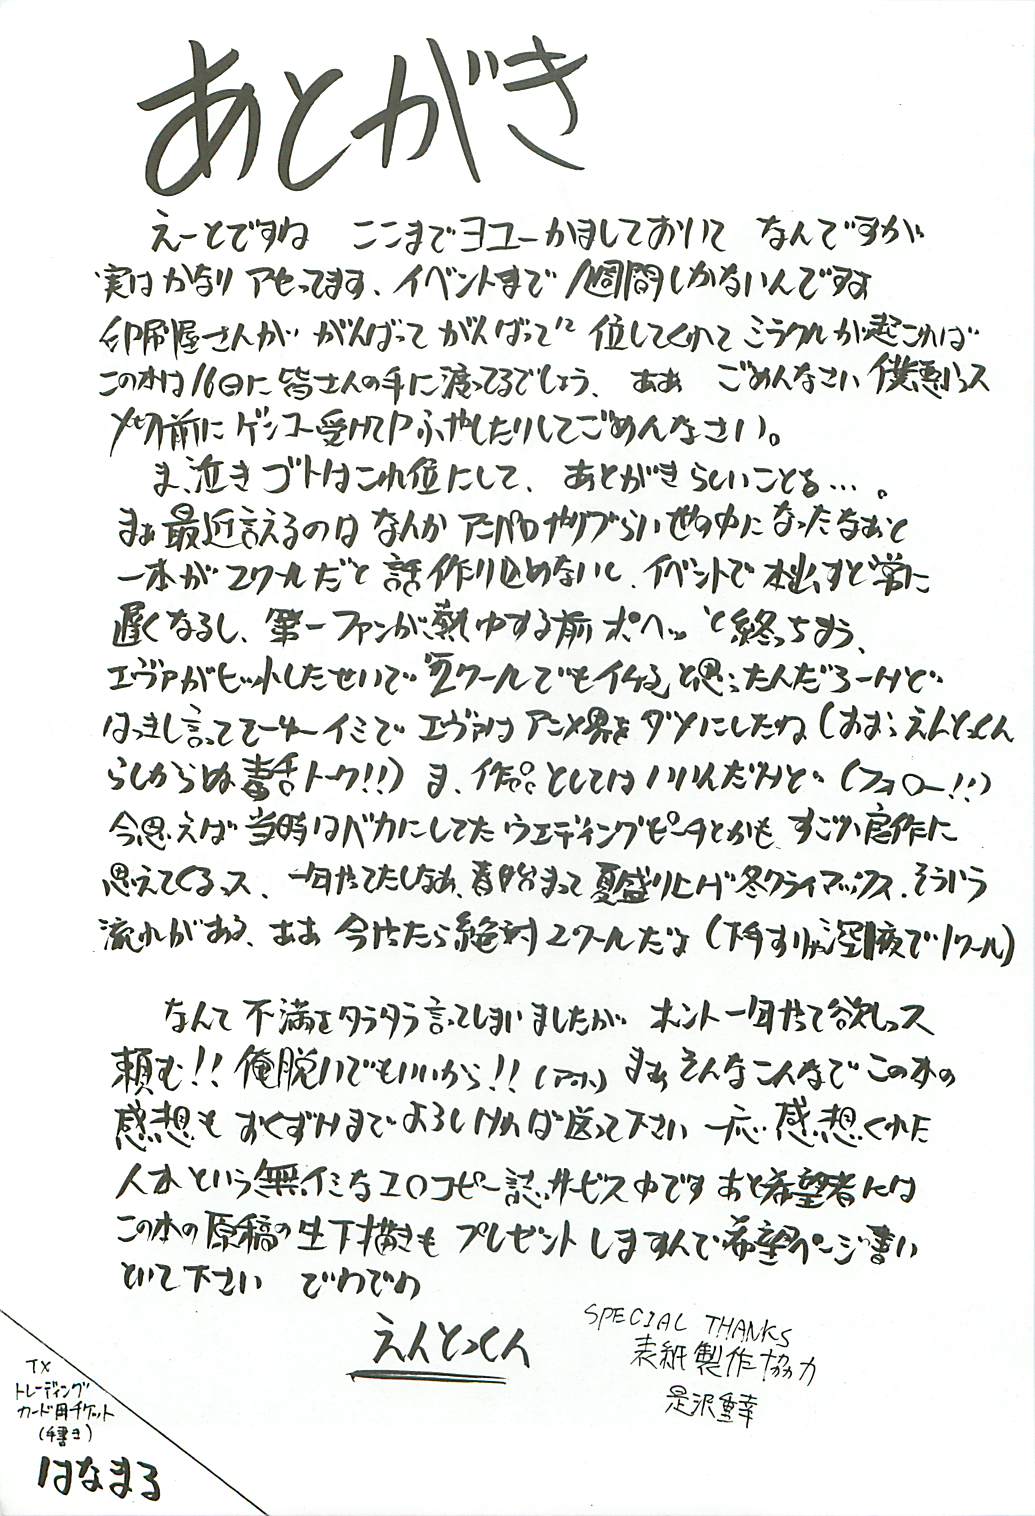 あとがき
えーとですね ここまでヨユーかましておいて なんですが
実はかなり アセってます、イベントまで1週間しかないんですよ
印刷屋さんが がんばって がんばって 位してくれて ミラクルが起これば
この本は16日に皆さんの手に渡ってるでしょう、ああ ごめんなさい 僕悪いっス
〆切前にゲンコー受けてPふやしたりしてごめんなさい。
ま、泣きゴトはこれ位にして、あとがきらしいことを…。
まぁ最近言えるのは なんか アニパロやりづらい世の中になったなぁと
一本が2クールだと 話作り込めないし、イベントで本出すと常に
遅くなるし、第一ファンが熱中する前 ポヘッと終っちまう、
エヴァがヒットしたせいで"2クールでもイケる"と思ったんだろーけど
はっきし言ってそーゆーイミで エヴァは アニメ界を ダメにしたね(おおっえんとっくん
らしからぬ毒舌トーク!!)ま、作品としてはいいんだけど(フォロー!!)
今思えば 当時はバカにしてた ウエディングピーチとかも すごい良作に
思えてくるっス、一年やってたしなぁ、春始まって 夏盛り上げ 冬クライマックス、そういう
流れがある、ああ 今やったら絶対2クールだよ(下手すりゃ深夜で1クール)
なんて 不満を タラタラ言ってしまいましたが ホント一年やって欲しっス
頼む!!俺脱いでもいいから!!(アホ) まぁ そんなこんなで この本の
感想も おくづけまで よろしければ送って下さい 一応 感想くれた
人には という 無イミなエロコピー誌サービス中です あと希望者には
この本の原稿の生下描きも プレゼントしますんで希望ページ書い
といて下さい でわでわ
えんとっくん
SPECIAL THANKS
表紙製作協力
是沢重幸
TX
トレーディング
カード用チケット
(手書き)
はなまる